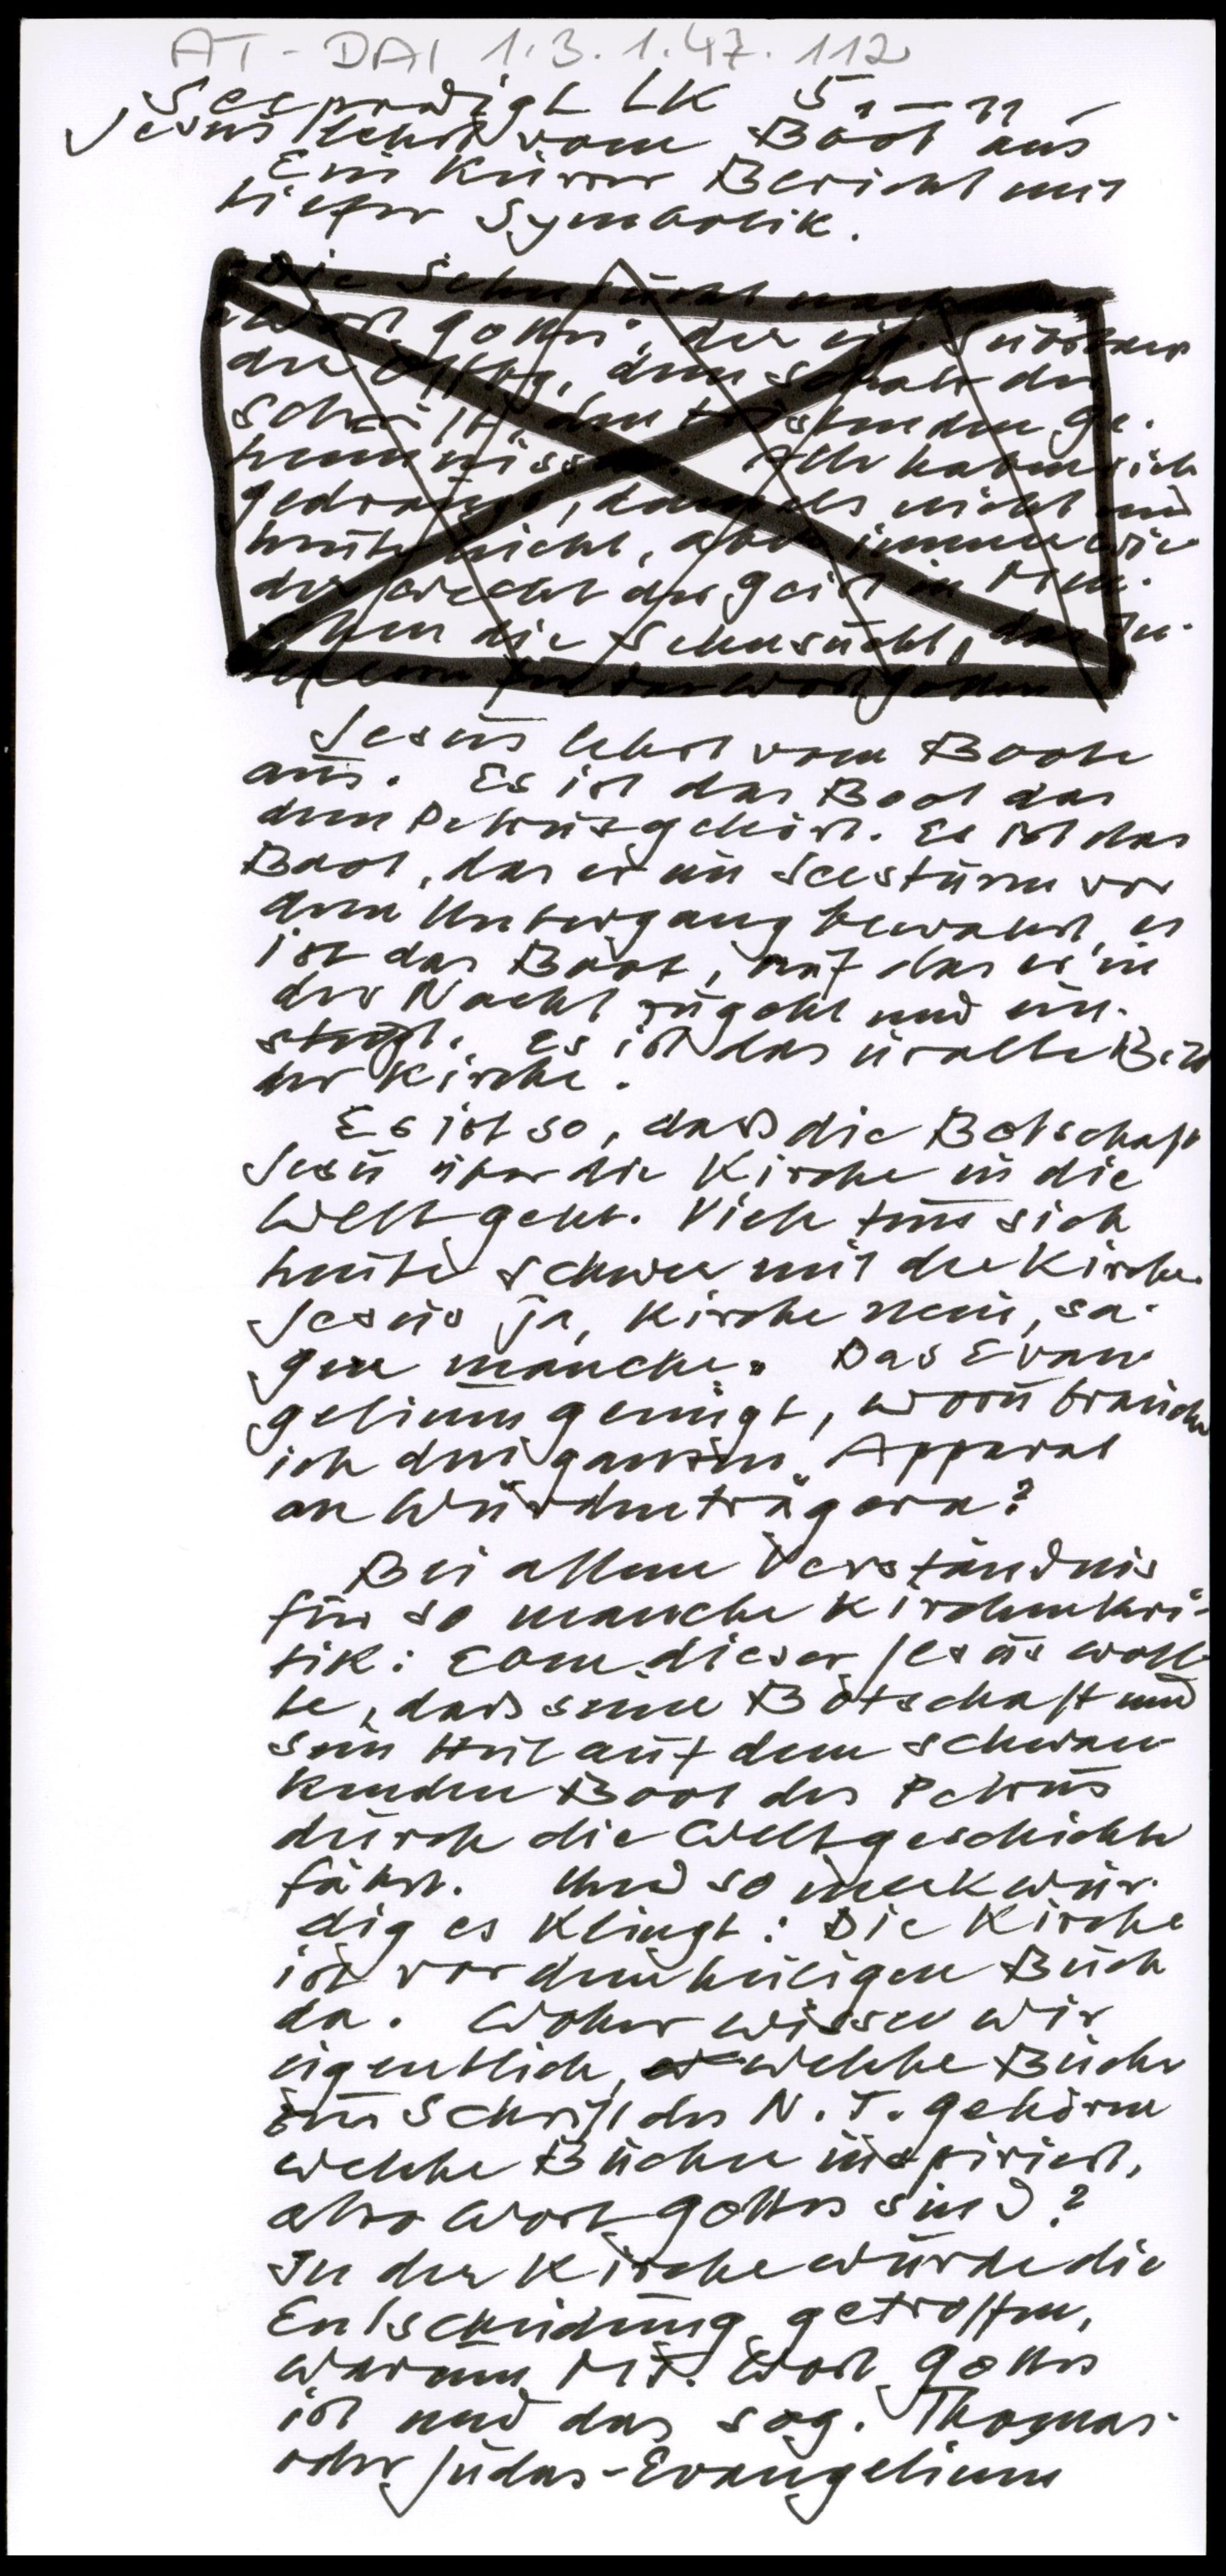 AT-DAI 1.3.1.47.112
Seepredigt LK 5 1-11
Jesus lehrt vom Boot aus
Ein kurzer Bericht mit
tiefer Symbolik.
Die Sehnsucht nach
Wort Gottes, der
der, dem Schatz der
Schrift, den tröstenden Ge-
heimnissen. Alle haben sich
gedrängt, damals nicht und
heute nicht, aber immer wie-
der weckt der Geist in Men-
schen die Sehnsucht,
Wort Gottes
Jesus lehrt vom Boote
aus. Es ist das Boot das
dem Petrus gehört. Es ist das
Boot, das er im Seesturm vor
dem Untergang bewahrt, es
ist das Boot, auf das er in
der Nacht zugeht und ein-
steigt. Es ist das uralte Bild
der Kirche.
Es ist so, dass die Botschaft
Jesu über die Kirche in die
Welt geht. Viele tun sich
heute schwer mit der Kirche.
Jesus ja, Kirche nein, sa-
gen manche. Das Evan-
gelium genügt, wozu brauche
ich den ganzen Apparat
an Würdenträgern?
Bei allem Verständnis
für so manche Kirchenkri-
tik: Eben dieser Jesus woll-
te, dass seine Botschaft und
sein Heil auf dem schwan-
kenden Boot des Petrus
durch die Weltgeschichte
fährt. Und so merkwür-
dig es klingt: Die Kirche
ist vor dem heiligen Buch
da. Woher wissen wir
eigentlich, welche Bücher
zur Schrift des N.T. gehören
welche Bücher inspiriert,
also Wort Gottes sind?
In der Kirche wurde die
Entscheidung getroffen,
warum Mt. Wort Gottes
ist und das sog. Thomas-
oder Judas-Evangelium